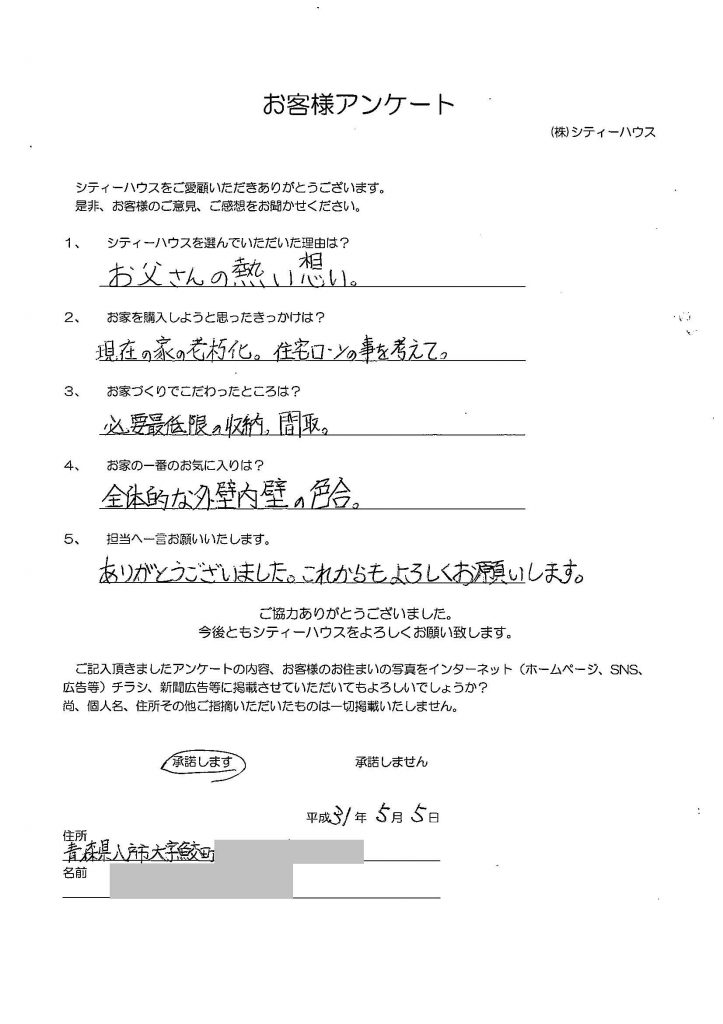 お客様アンケート
(株)シティーハウス
シティーハウスをご愛顧いただきありがとうございます。
是非、お客様のご意見、ご感想をお聞かせください。
1、 シティーハウスを選んでいただいた理由は?
お父さんの熱い想い。
2、 お家を購入しようと思ったきっかけは?
現在の家の老朽化。住宅ローンの事を考えて。
3、 お家づくりでこだわったところは?
必要最低限の収納。間取。
4、 お家の一番のお気に入りは?
全体的な外壁内壁の色合。
5、 担当へ一言お願いいたします。
ありがとうございました。これからもよろしくお願いします。
ご協力ありがとうございました。
今後ともシティーハウスをよろしくお願い致します。
ご記入頂きましたアンケートの内容、お客様のお住まいの写真をインターネット(ホームページ、SNS、
広告等)チラシ、新聞広告等に掲載させていただいてもよろしいでしょうか?
尚、個人名、住所その他ご指摘いただいたものは一切掲載いたしません。
承諾します 承諾しません
平成31年 5月 5日
住所
青森県八戸市大字鮫町
名前